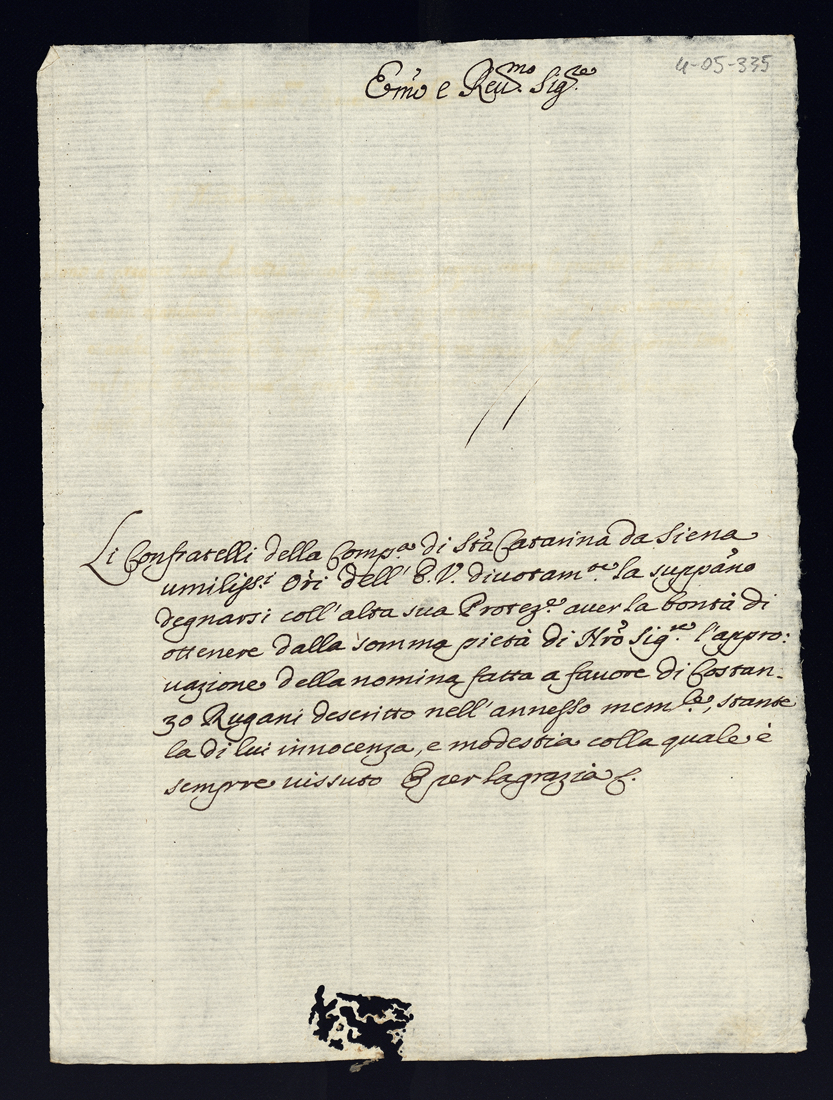 4-05-335
Em̃o e Reu.mo Sig.re
Li Confratelli della Comp.a di Sta Catarina da Siena
umiliss.i Ori dell'E.V. divotam.te la suppano
degnarsi coll'alta sua Protez.e aver la bontà di
ottenere dalla somma pietà di Nro Sig.re l'appro:
uazione della nomina fatta a fauore di Costan-
zo Rugani descritto nell'annesso mem.le, stante
la di lui innocenza, e modestia colla quale è
sempre uissuto E per la grazia &.